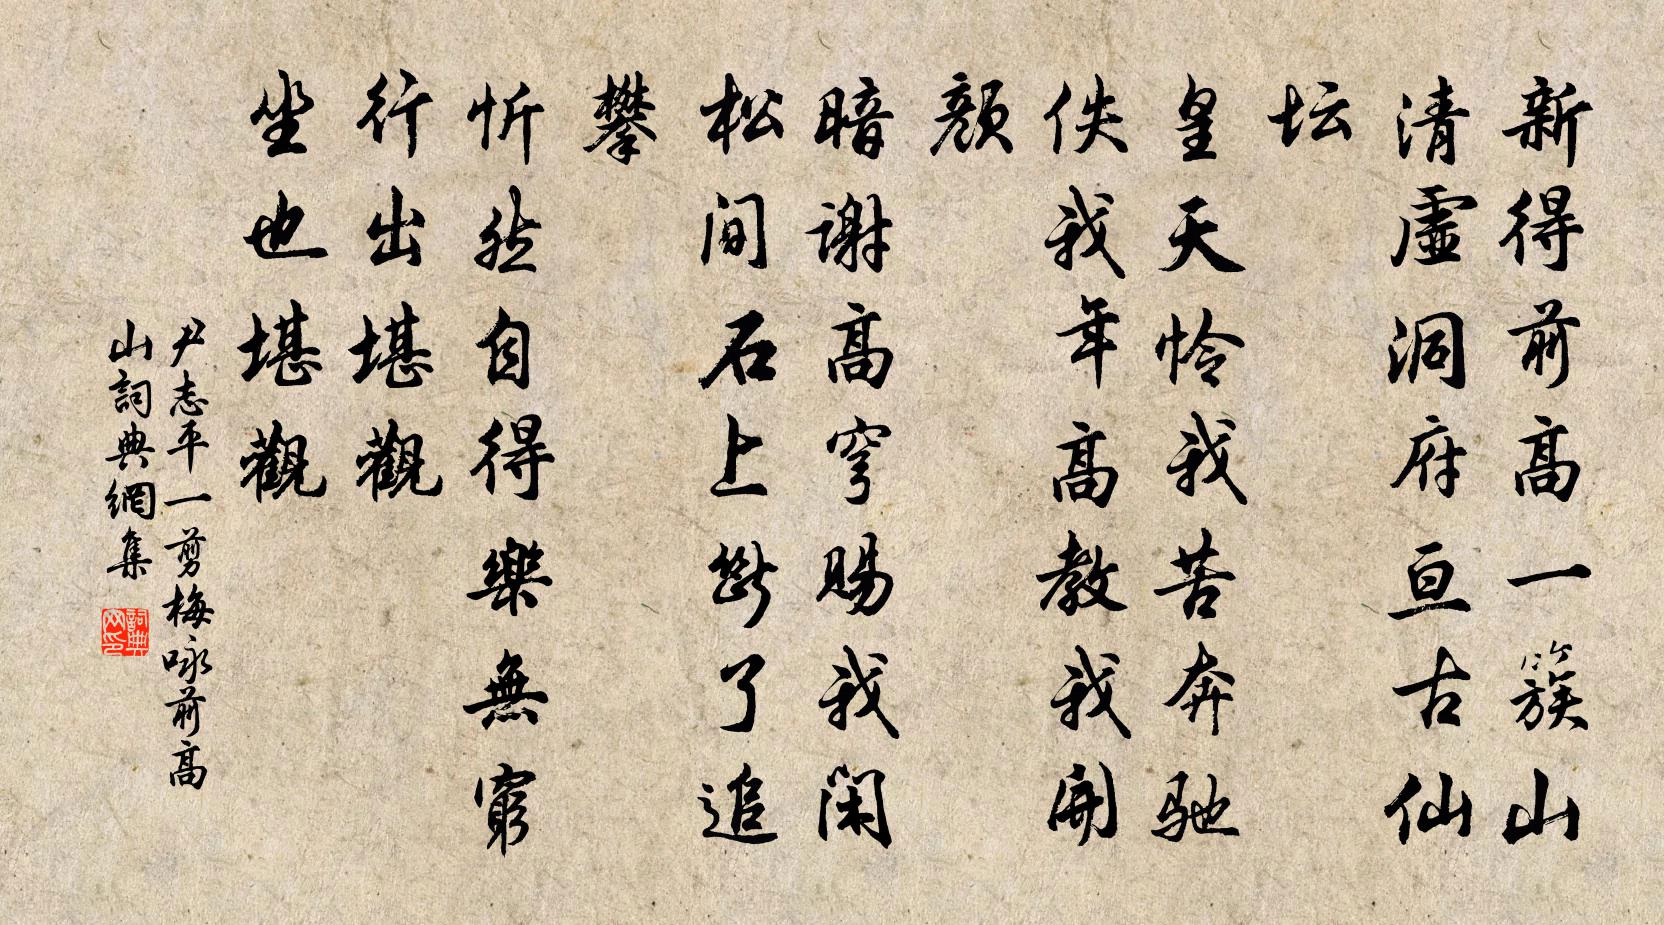 新得前高一簇山
清虛洞府亘古仙
坛
皇天怜我苦奔驰
佚我年高教我開
顏
暗謝高穹賜我閑
松間石上斷了追
攀
忻然自得樂無窮
行出堪觀
坐也堪觀
尹志平一剪梅咏前高
山詞典網集
詞典
网印